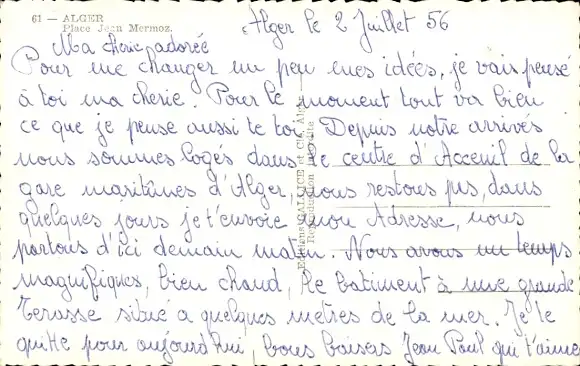 61 — ALGER
Place Jean Mermoz.
Alger le 2 Juillet 56
Ma cherie adorée
Pour me changer un peu mes idées, je vais pensé
à toi ma cherie. Pour le moment tout va bien
ce que je pense aussi te toi. Depuis notre arrivés
nous sommes logés dans le centre d'Acceuil de la
gare maritimes d'Alger, nous restons pas, dans
quelques jours je t'envoie mon Adresse, nous
partons d'ici demain matin. Nous avons un temps
magnifiques, bien chaud, le batiment à une grande
Terasse situé a quelques metres de la mer. Je te
quitte pour aujourd'hui, bons baisers Jean Paul qui t'aime
Reproduction interdite